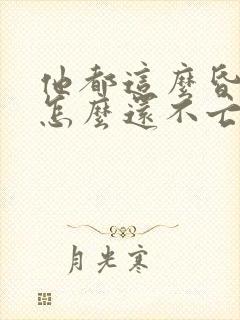 他都這麼昏
怎麼還不亡
月光寒